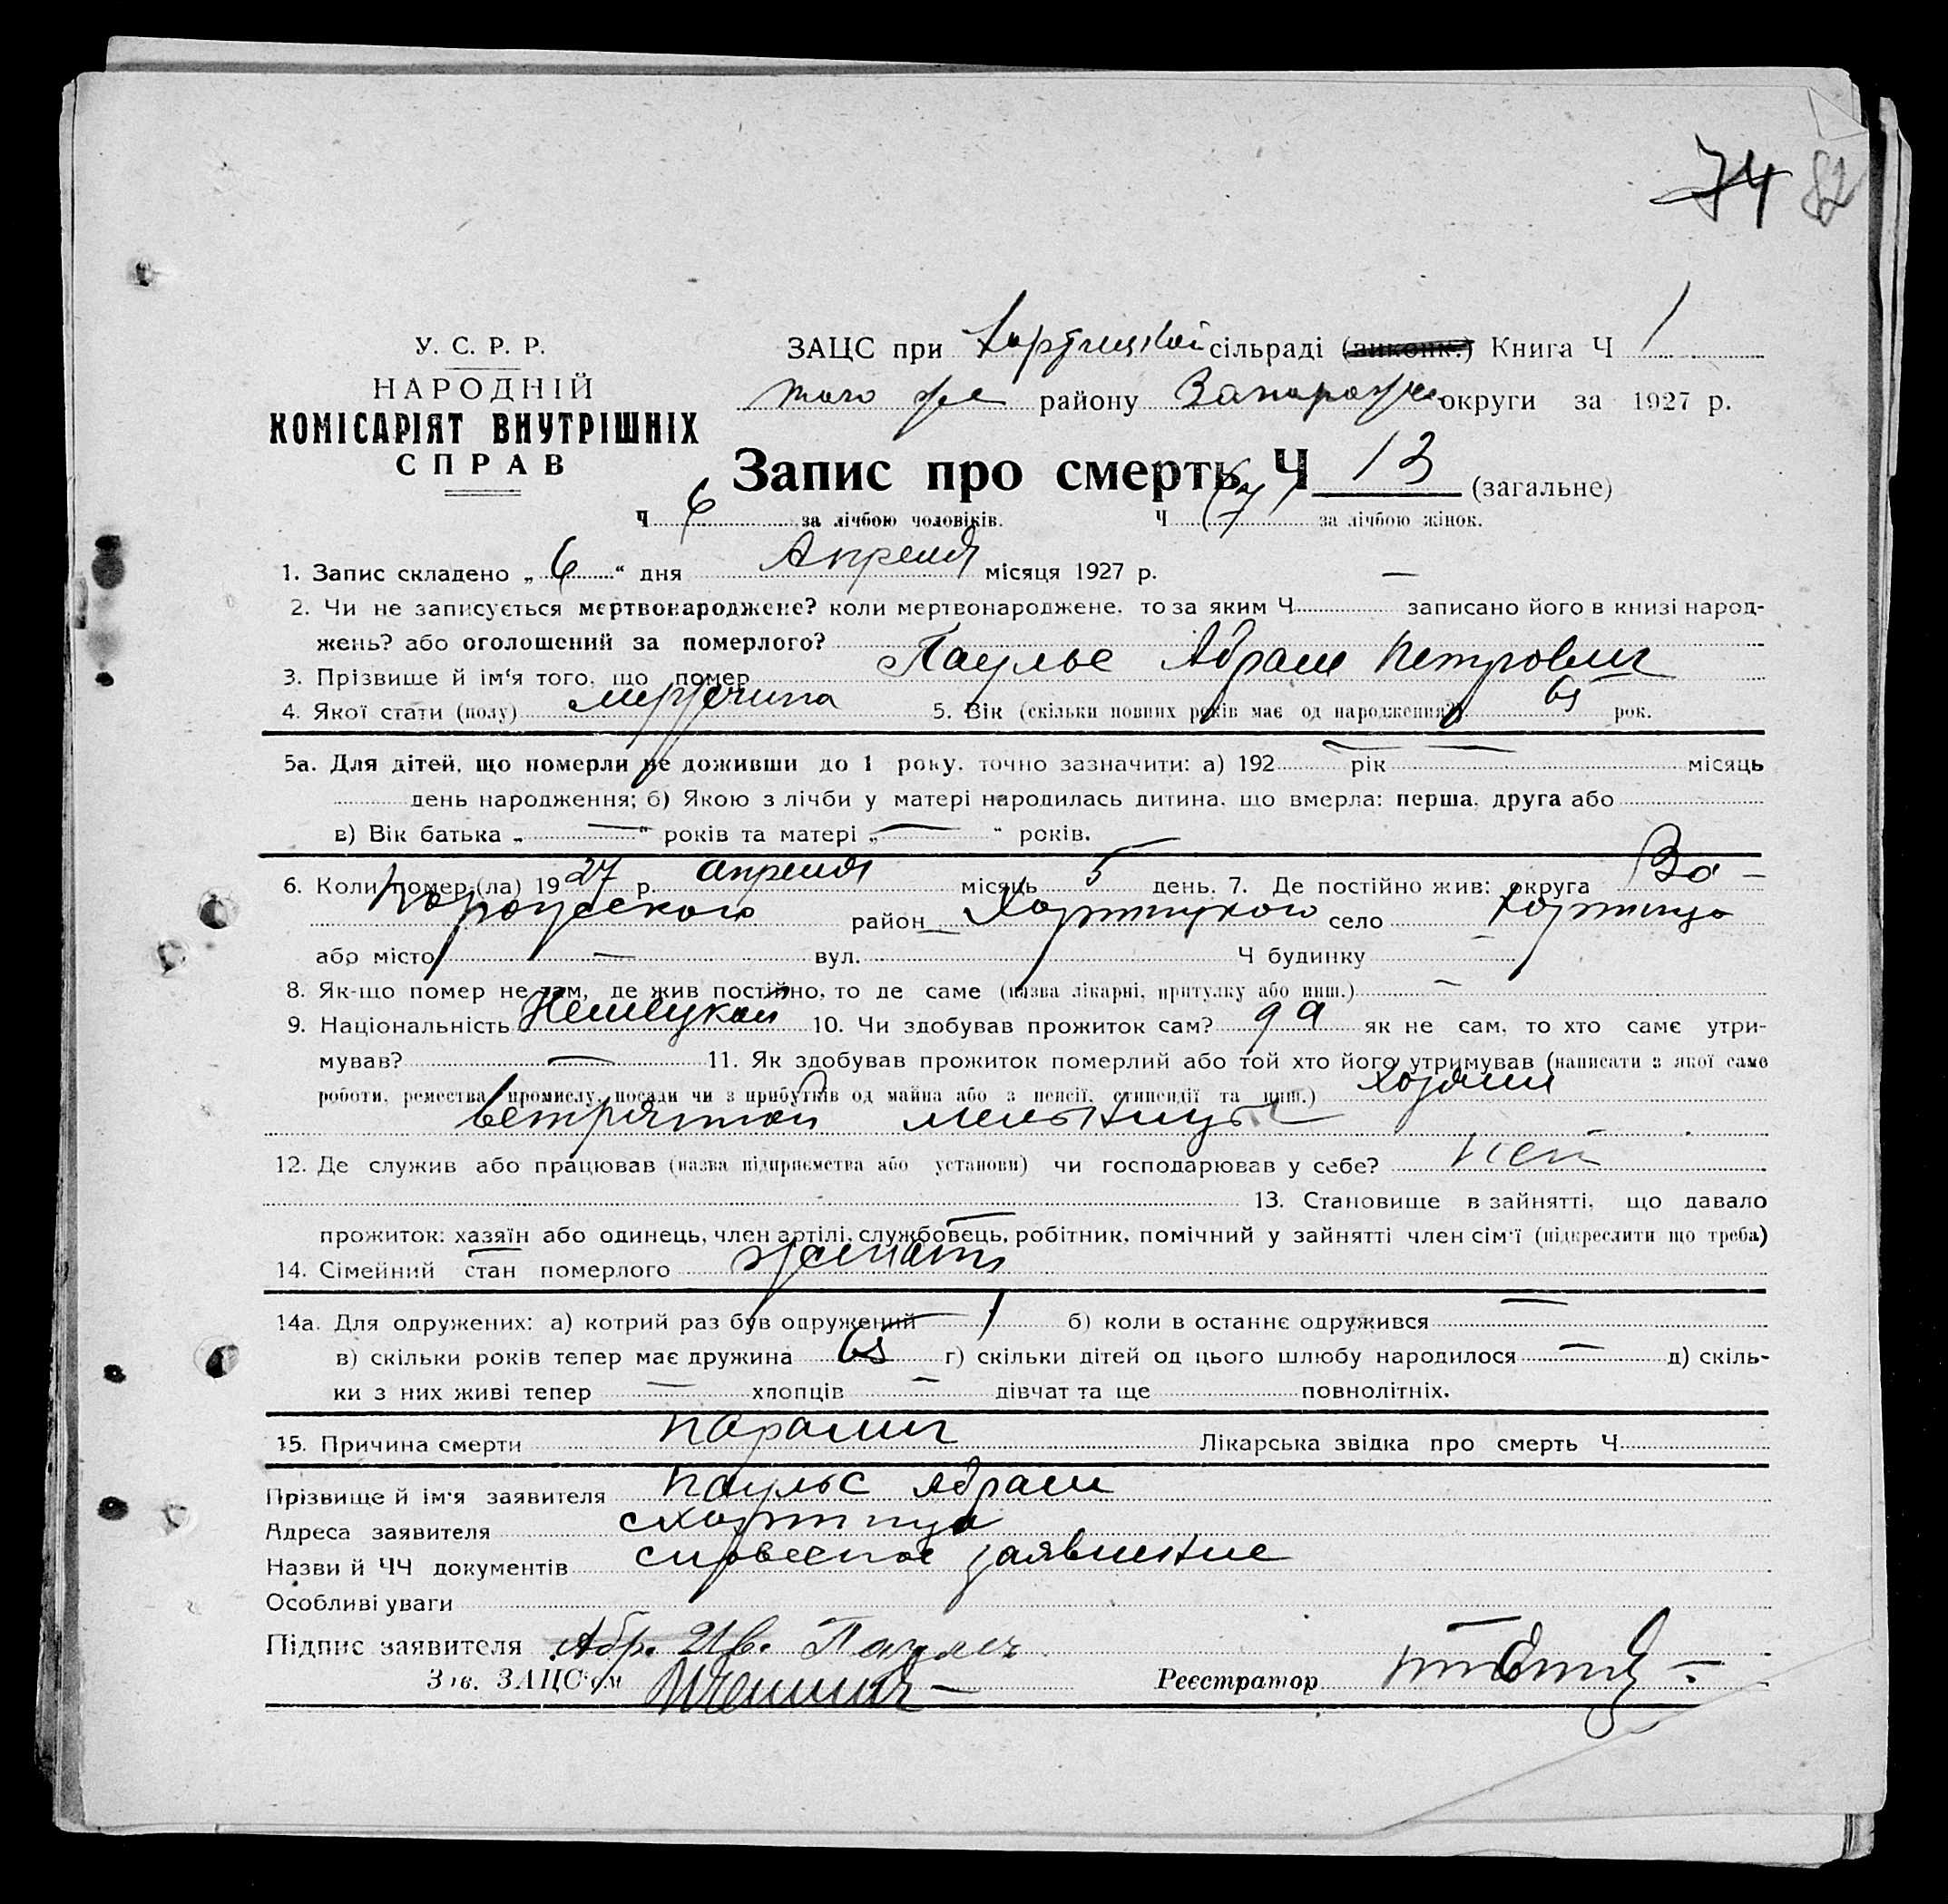 74 82
У. С. Р. Р.
НАРОДНІЙ
КОМІСАРІЯТ ВНУТРІШНІХ
СПРАВ
ЗАЦС при Хортицкой сільраді (виконк.) Книга Ч 1
того же району Запорожс. округи за 1927 р.
Запис про смерть Ч 13 (загальне)
Ч 6 за лічбою чоловіків. Ч 7 за лічбою жінок.
1. Запис складено „ 6 “ дня Апреля місяця 1927 р.
2. Чи не записується мертвонароджене? коли мертвонароджене, то за яким Ч — записано його в книзі народ-
жень? або оголошений за померлого?
3. Прізвище й ім'я того, що помер Паульс Абрам Петрович
4. Якої стати (полу) мужчина 5. Вік (скільки повних років має од народження?) 65 рок.
5а. Для дітей, що померли не доживши до 1 року, точно зазначити: а) 192 — рік — місяць
день народження; б) Якою з лічби у матері народилась дитина, що вмерла: перша, друга або
в) Вік батька „ — “ років та матері „ — “ років.
6. Коли помер (ла) 1927 р. апреля місяць 5 день. 7. Де постійно жив: округа За-
порожского район Хортицкого село Хортица
або місто — вул. Ч будинку —
8. Як-що помер не там, де жив постійно, то де саме (назва лікарні, притулку або инш.) —
9. Національність Немецкой 10. Чи здобував прожиток сам? да як не сам, то хто саме утри-
мував? — 11. Як здобував прожиток померлий або той хто його утримував (написати з якої саме
роботи, ремества, промислу, посади чи з прибутків од майна або з пенсії, стипендії та инш.) хозяин
ветряной мельницы
12. Де служив або працював (назва підприємства або установи) чи господарював у себе? —
13. Становище в зайнятті, що давало
прожиток: хазяїн або одинець, член артілі, службовець, робітник, помічний у зайнятті член сім'ї (підкреслити що треба)
14. Сімейний стан померлого женат
14а. Для одружених: а) котрий раз був одружений 1 б) коли в останнє одружився —
в) скільки років тепер має дружина 65 г) скільки дітей од цього шлюбу народилося — д) скіль-
ки з них живі тепер — хлопців — дівчат та ще повнолітніх.
15. Причина смерти паралич Лікарська звідка про смерть Ч
Прізвище й ім'я заявителя Паульс Абрам
Адреса заявителя с Хортица
Назви й ЧЧ документів словесное заявление
Особливі уваги
Підпис заявителя Абр. Ив. Паульс
Зав. ЗАЦС'ом
Реєстратор